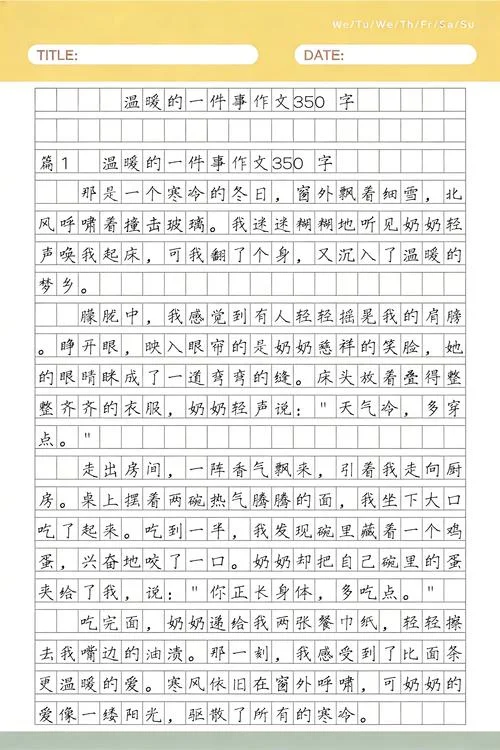 We/Tu/We/Th/Fr/Sa/Su
TITLE:
DATE:
温暖的一件事作文350 字
篇1 温暖的一件事作文350 字
那是一个寒冷的冬日，窗外飘着细雪，北
风呼啸着撞击玻璃。我迷迷糊糊地听见奶奶轻
声唤我起床，可我翻了个身，又沉入了温暖的
梦乡。
朦胧中，我感觉到有人轻轻摇晃我的肩膀
。睁开眼，映入眼帘的是奶奶慈祥的笑脸，她
的眼睛眯成了一道弯弯的缝。床头放着叠得整
整齐齐的衣服，奶奶轻声说："天气冷，多穿
点。"
走出房间，一阵香气飘来，引着我走向厨
房。桌上摆着两碗热气腾腾的面，我坐下大口
吃了起来。吃到一半，我发现碗里藏着一个鸡
蛋，兴奋地咬了一口。奶奶却把自己碗里的蛋
夹给了我，说："你正长身体，多吃点。"
吃完面，奶奶递给我两张餐巾纸，轻轻擦
去我嘴边的油渍。那一刻，我感受到了比面条
更温暖的爱。寒风依旧在窗外呼啸，可奶奶的
爱像一缕阳光，驱散了所有的寒冷。